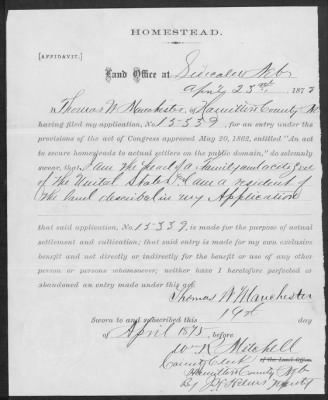 HOMESTEAD.
[AFFIDAVIT.]
Land Office at Lincoln Neb
April 23rd 1873
I, Thomas W Manchester, of Hamilton County
having filed my application, No. 15339, for an entry under the
provisions of the act of Congress approved May 20, 1862, entitled "An act
to secure homesteads to actual settlers on the public domain," do solemnly
swear, that I am the head of a Family and a citizen
of the United States & I am a resident of
the land described in my Application
that said application, No. 15339, is made for the purpose of actual
settlement and cultivation; that said entry is made for my own exclusive
benefit and not directly or indirectly for the benefit or use of any other
person or persons whomsoever; neither have I heretofore perfected or
abandoned an entry made under this act.
Thomas W Manchester
Sworn to and subscribed this 19th day
of April 1873, before
Wm R Mitchell
County Clerk of the Land Office.
Hamilton County Neb
By Deputy